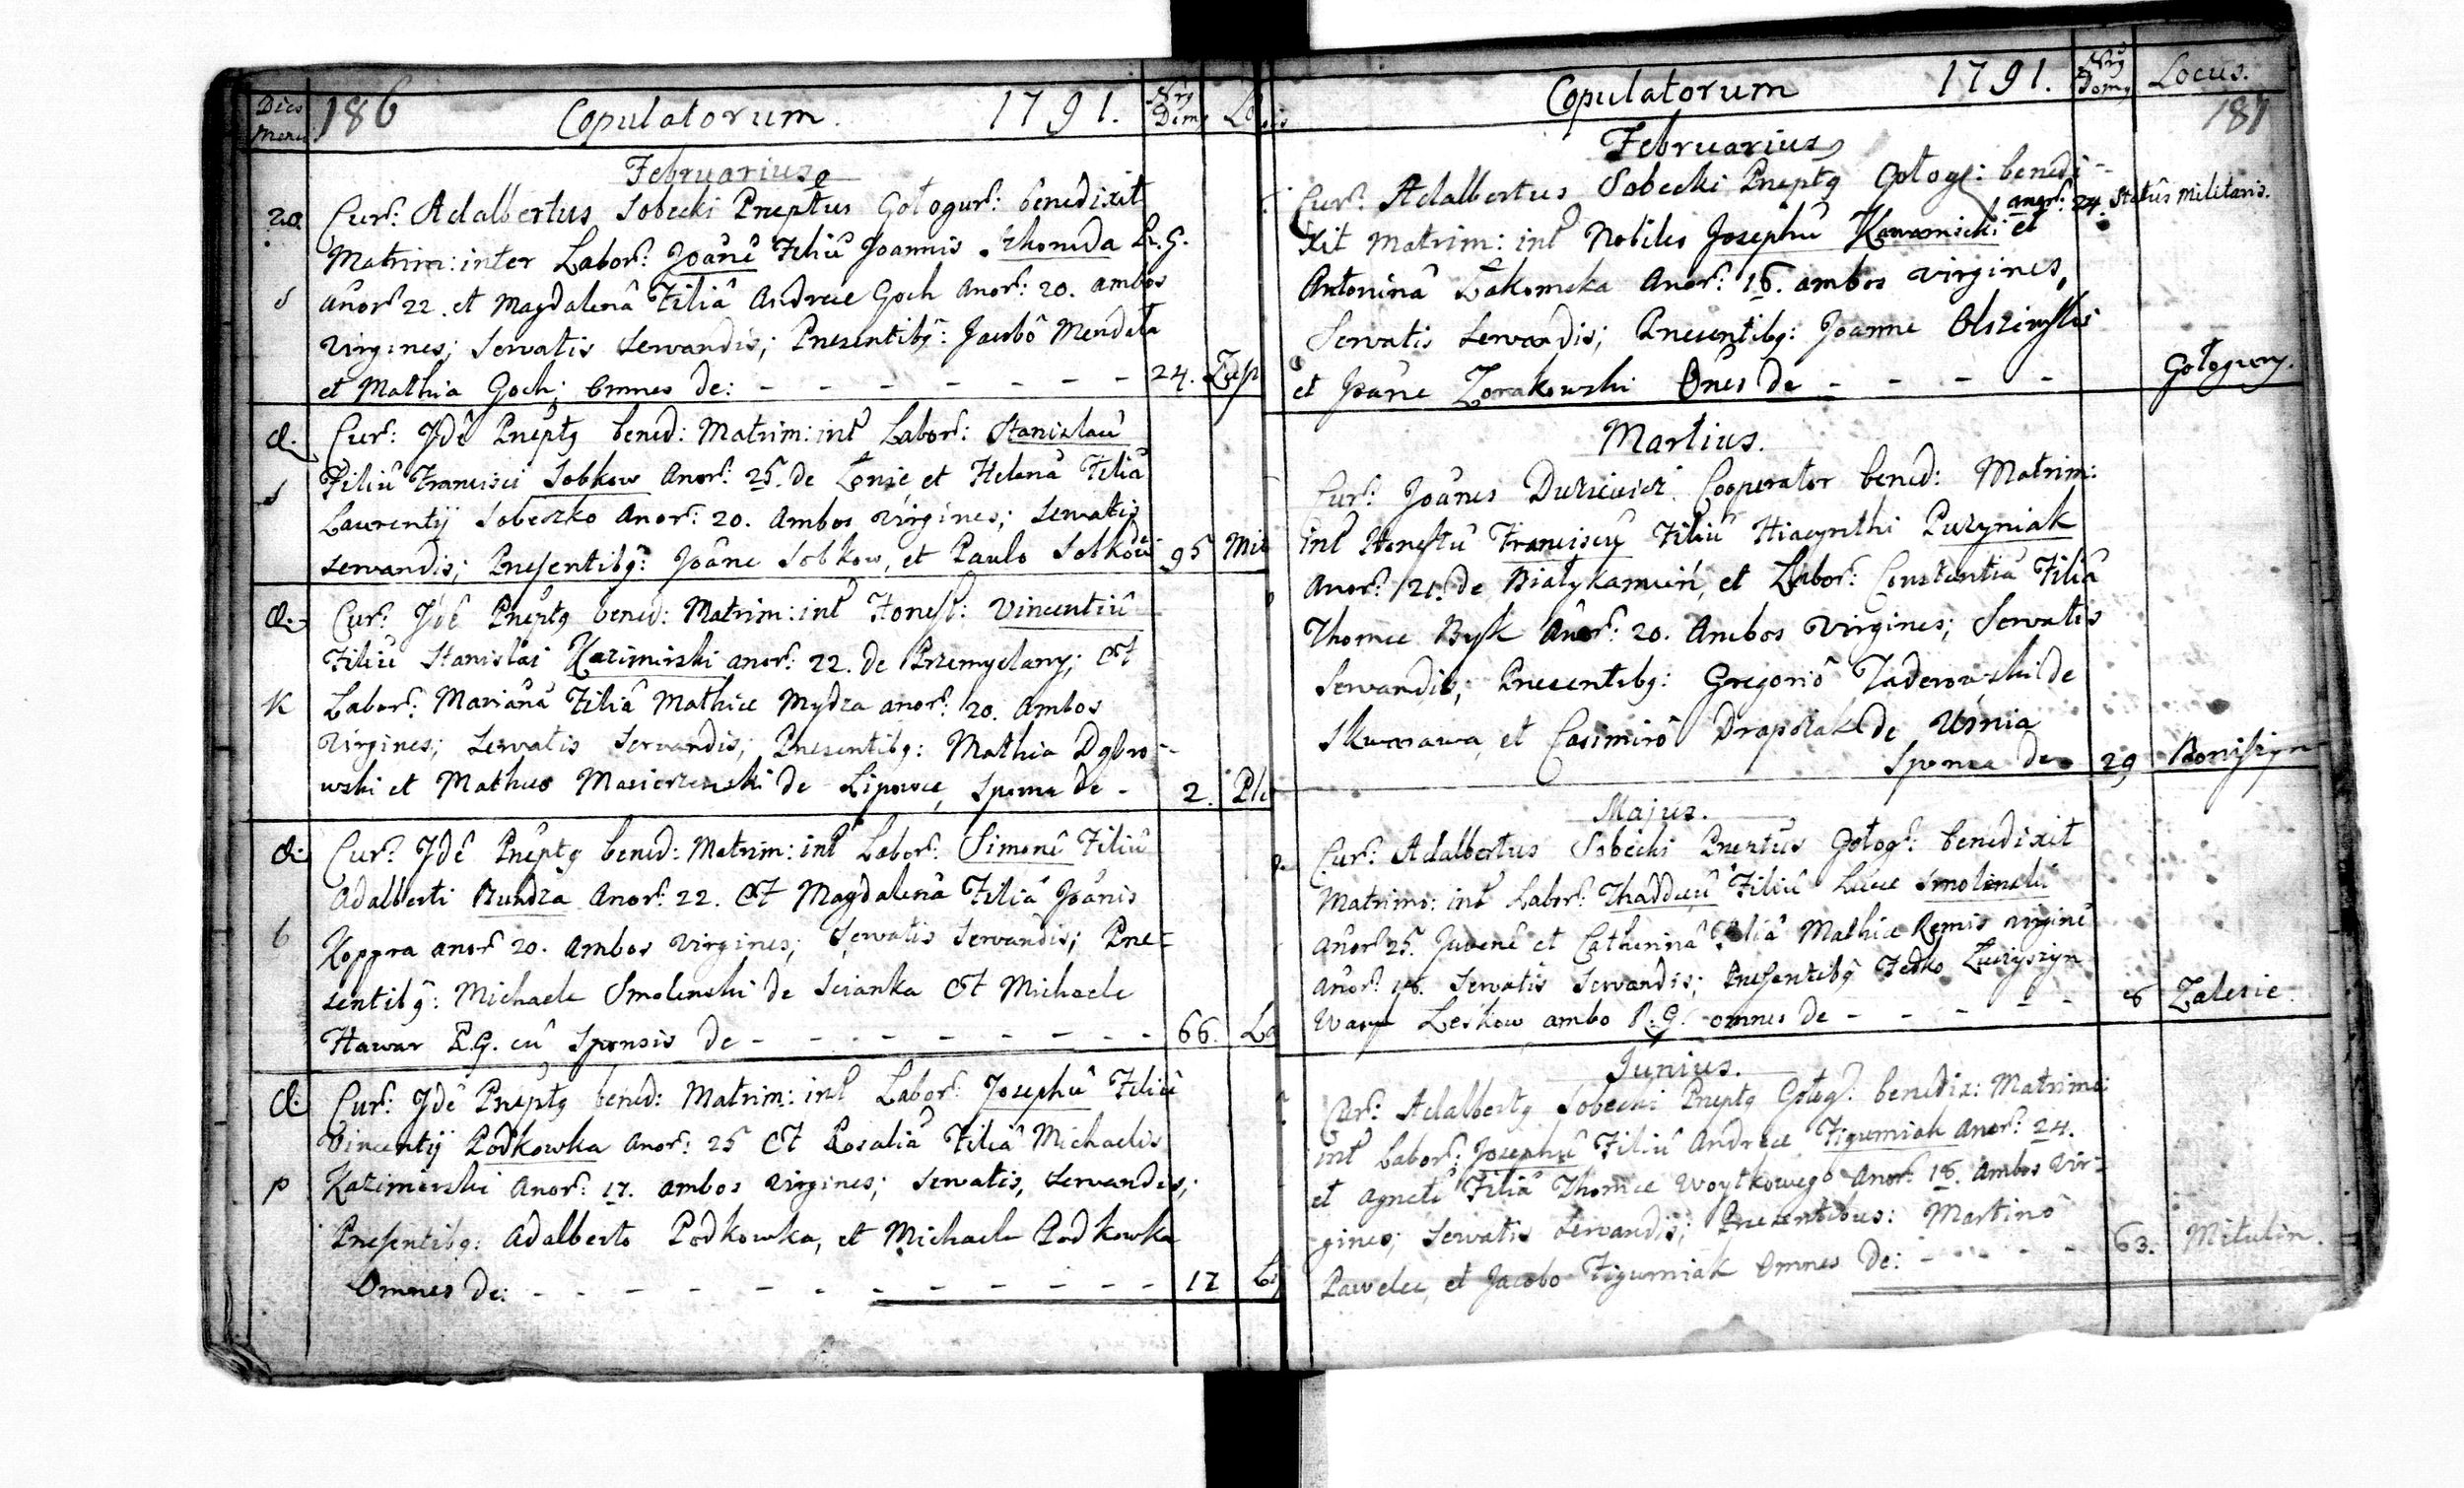 Dies Mens
186 Copulatorum. 1791. Nrg Dom9
Februarius
20. Cur: Adalbertus Sobecki Prẽptus Gołogur: benedixit
Matrim: inter Labor: Joanê Filiû Joannis R. G.
s Anor: 22. et Magdalenâ Filiâ Andreæ Goch Anor: 20. ambos
virgines; Servatis Servandis; Presentibg: Jacobô Mendela
et Mathia Goch; Omnes de: - - - - - - - - 24.
d. Cur: Jdê Prẽptg bened: Matrim: int Labor: Stanislaû
s Filiû Francisci Sobkow Anor: 25. de et Helenâ Filiâ
Laurentij Sobeszko Anor: 20. Ambos virgines; servatis
servandis; Presentibg: Joâne Sobkow, et Paulo 95 Mit
d. Cur: Jdê Prẽptg bened: Matrim: int Honest: Vincentiû
Filiû Stanislai Kazimirski anor: 22. de Przemyslany; et
K Labor: Mariânâ Filiâ Mathiæ Mydza anor: 20. Ambos
Virgines; Servatis Servandis; Presentibg: Mathia Dąbro-
wski et Matheo de Lipowce, Sponsa de - 2.
d. Cur: Jdê Prẽptg bened: Matrim: int Labor: Simonê Filiû
Adalberti Bundza Anor: 22. et Magdalenâ Filiâ Joânis
b Koppra anor: 20. Ambos virgines; Servatis Servandis; Pre=
sentibg: Michaele Smolenski de Scianka et Michaele
Hawar R.G. cû Sponsis de - - - - - - - - - 66.
d. Cur: Jdê Prẽptg bened: Matrim: int Labor: Josephû Filiû
Vincentij Podkowka Anor: 25 et Rosaliâ Filiâ Michaelis
p Kazimerski Anor: 17. ambos virgines; servatis, servandis;
Presentibg: Adalberto Podkowka, et Michaele Podkowka
Omnes de: - - - - - - - - - - - 17
Copulatorum 1791. Nrg Domg Locus.
187
Februarius
Cur: Adalbertus Sobecki Prẽptg Gołog: benedi-
anor: 24. Statûs Militaris.
xit Matrim: int Nobiles Josephû et
Antoninâ Anor: 18. ambos virgines,
Servatis Servandis; Presentibg: Joanne Olszewski
et Joâne Zorakowski Ônes de - - - - Gołogury.
Martius.
Cur: Joânes Cooperator bened: Matrim:
int Honestû Franciscû Filiû Hiacynthi Puzyniak
Anor: 21. de Białykamień, et Labor: Constantiâ Filiâ
Thomæ Bysk Anor: 20. Ambos Virgines; Servatis
Servandis; Presentibg: Gregoriô de
Skwarawa et Casimirô de Usnia
Sponsa de 29 Boniszyn
Majus.
Cur: Adalbertus Sobecki Prẽptus Gołog: benedixit
Matrimo: int Labor: Thaddeû Filiû Lucæ Smolenski
Anor: 25. Juvenê et Catherinâ Filiâ Mathiæ Remis virginê
Anor: 18. Servatis Servandis; Presentibg Fedko
Leskow ambo R: G. omnes de - - - - - 8 Zalesie.
Junius.
Cur: Adalbertg Sobecki Prẽptg Gołog: benedix: Matrimo:
int Labor: Josephû Filiû Andreæ Figurniak Anor: 24.
et Agnetê Filiâ Thomæ Woytkowego Anor: 18. Ambos Vir=
gines; Servatis Servandis; Presentibus: Martinô
Pawelec, et Jacobo Figurniak Omnes de: - - - - 63. Mitulin.